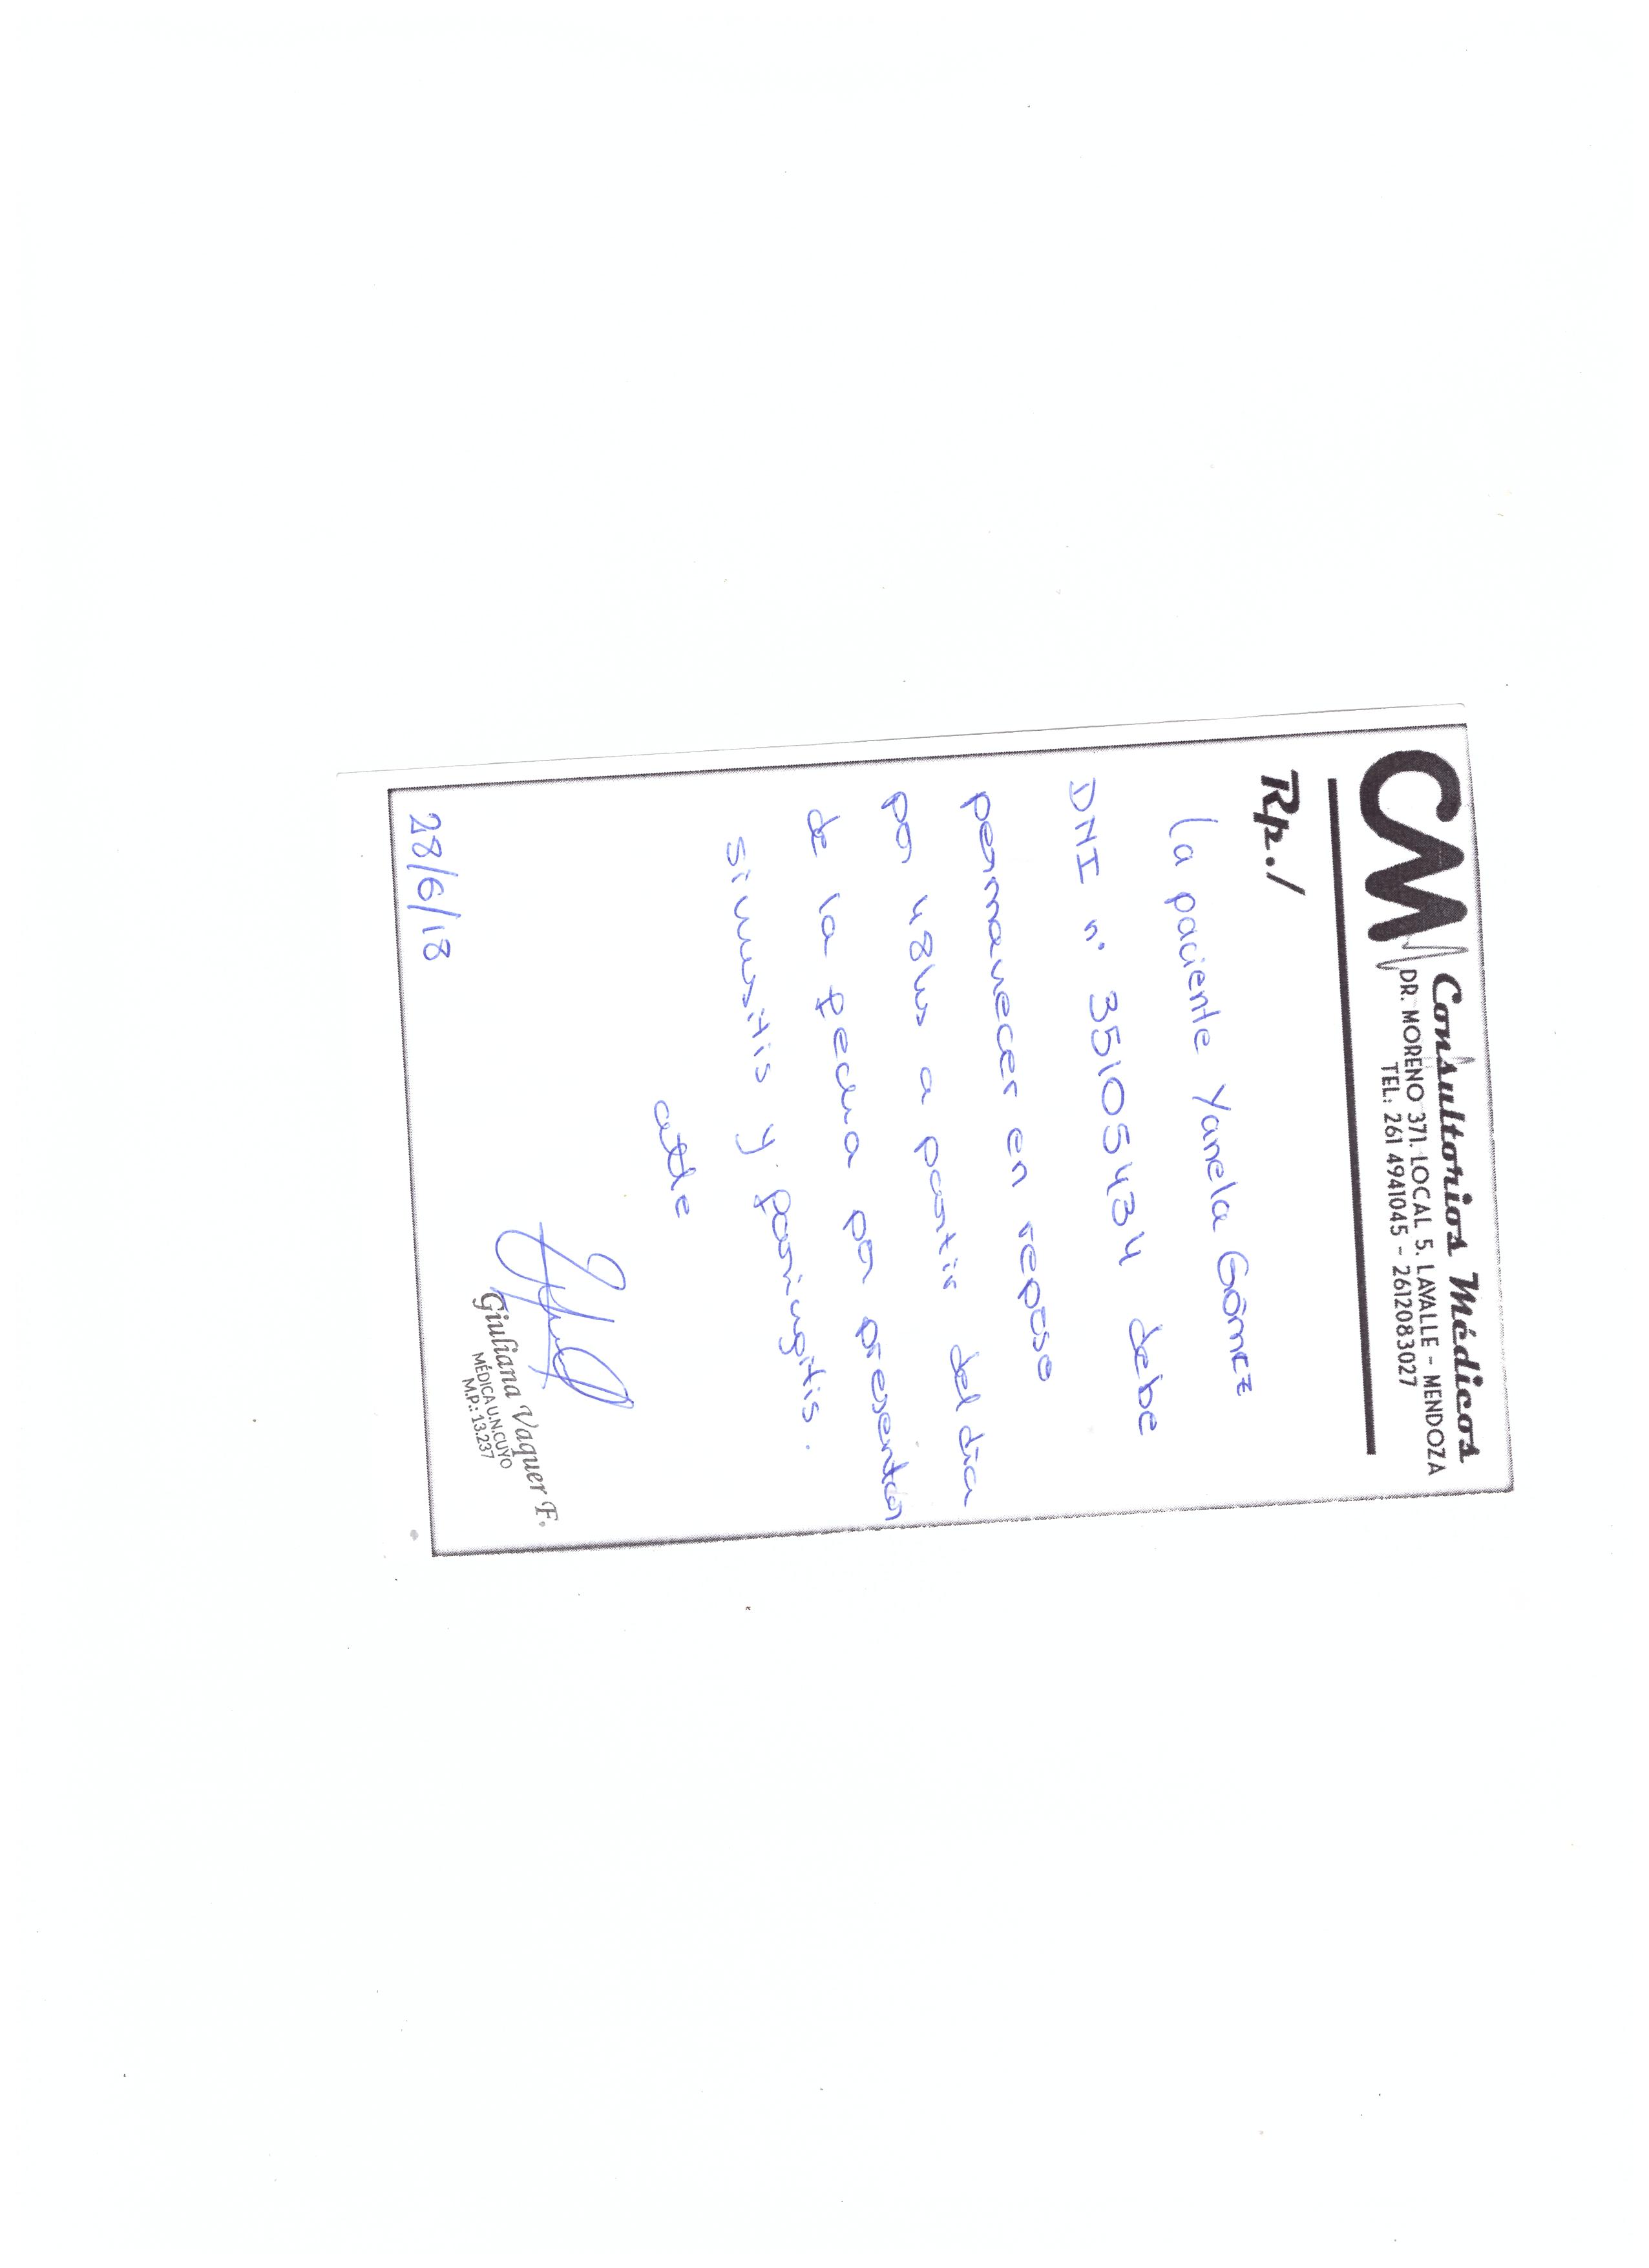 CM Consultorios Médicos
DR. MORENO 371. LOCAL 5. LAVALLE - MENDOZA
TEL: 261 4941045 - 2612083027
Rp./
La paciente Yanela Gómez
DNI n° 351054434 debe
permanecer en reposo
por 48hs a partir del día
de la fecha por presentar
sinusitis y faringitis.
atte
28/6/18
Giuliana Vaquer F.
MÉDICA U.N.CUYO
M.P.: 13.237